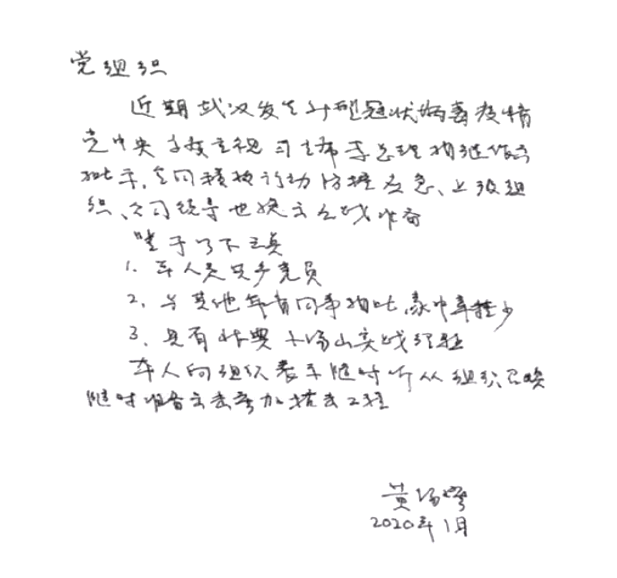 党组织
近期武汉发生新型冠状病毒疫情
党中央高度重视 习主席李总理相继作出
批示,全国积极行动防控应急、上级组
织、公司领导也决定
鉴于以下三点
1. 本人是共产党员
2. 与其他年青同事相比,家中牵挂少
3. 具有非典小汤山实战经验
本人向组织表示随时听从组织召唤
随时准备立即参加援建工程
黄
2020年1月